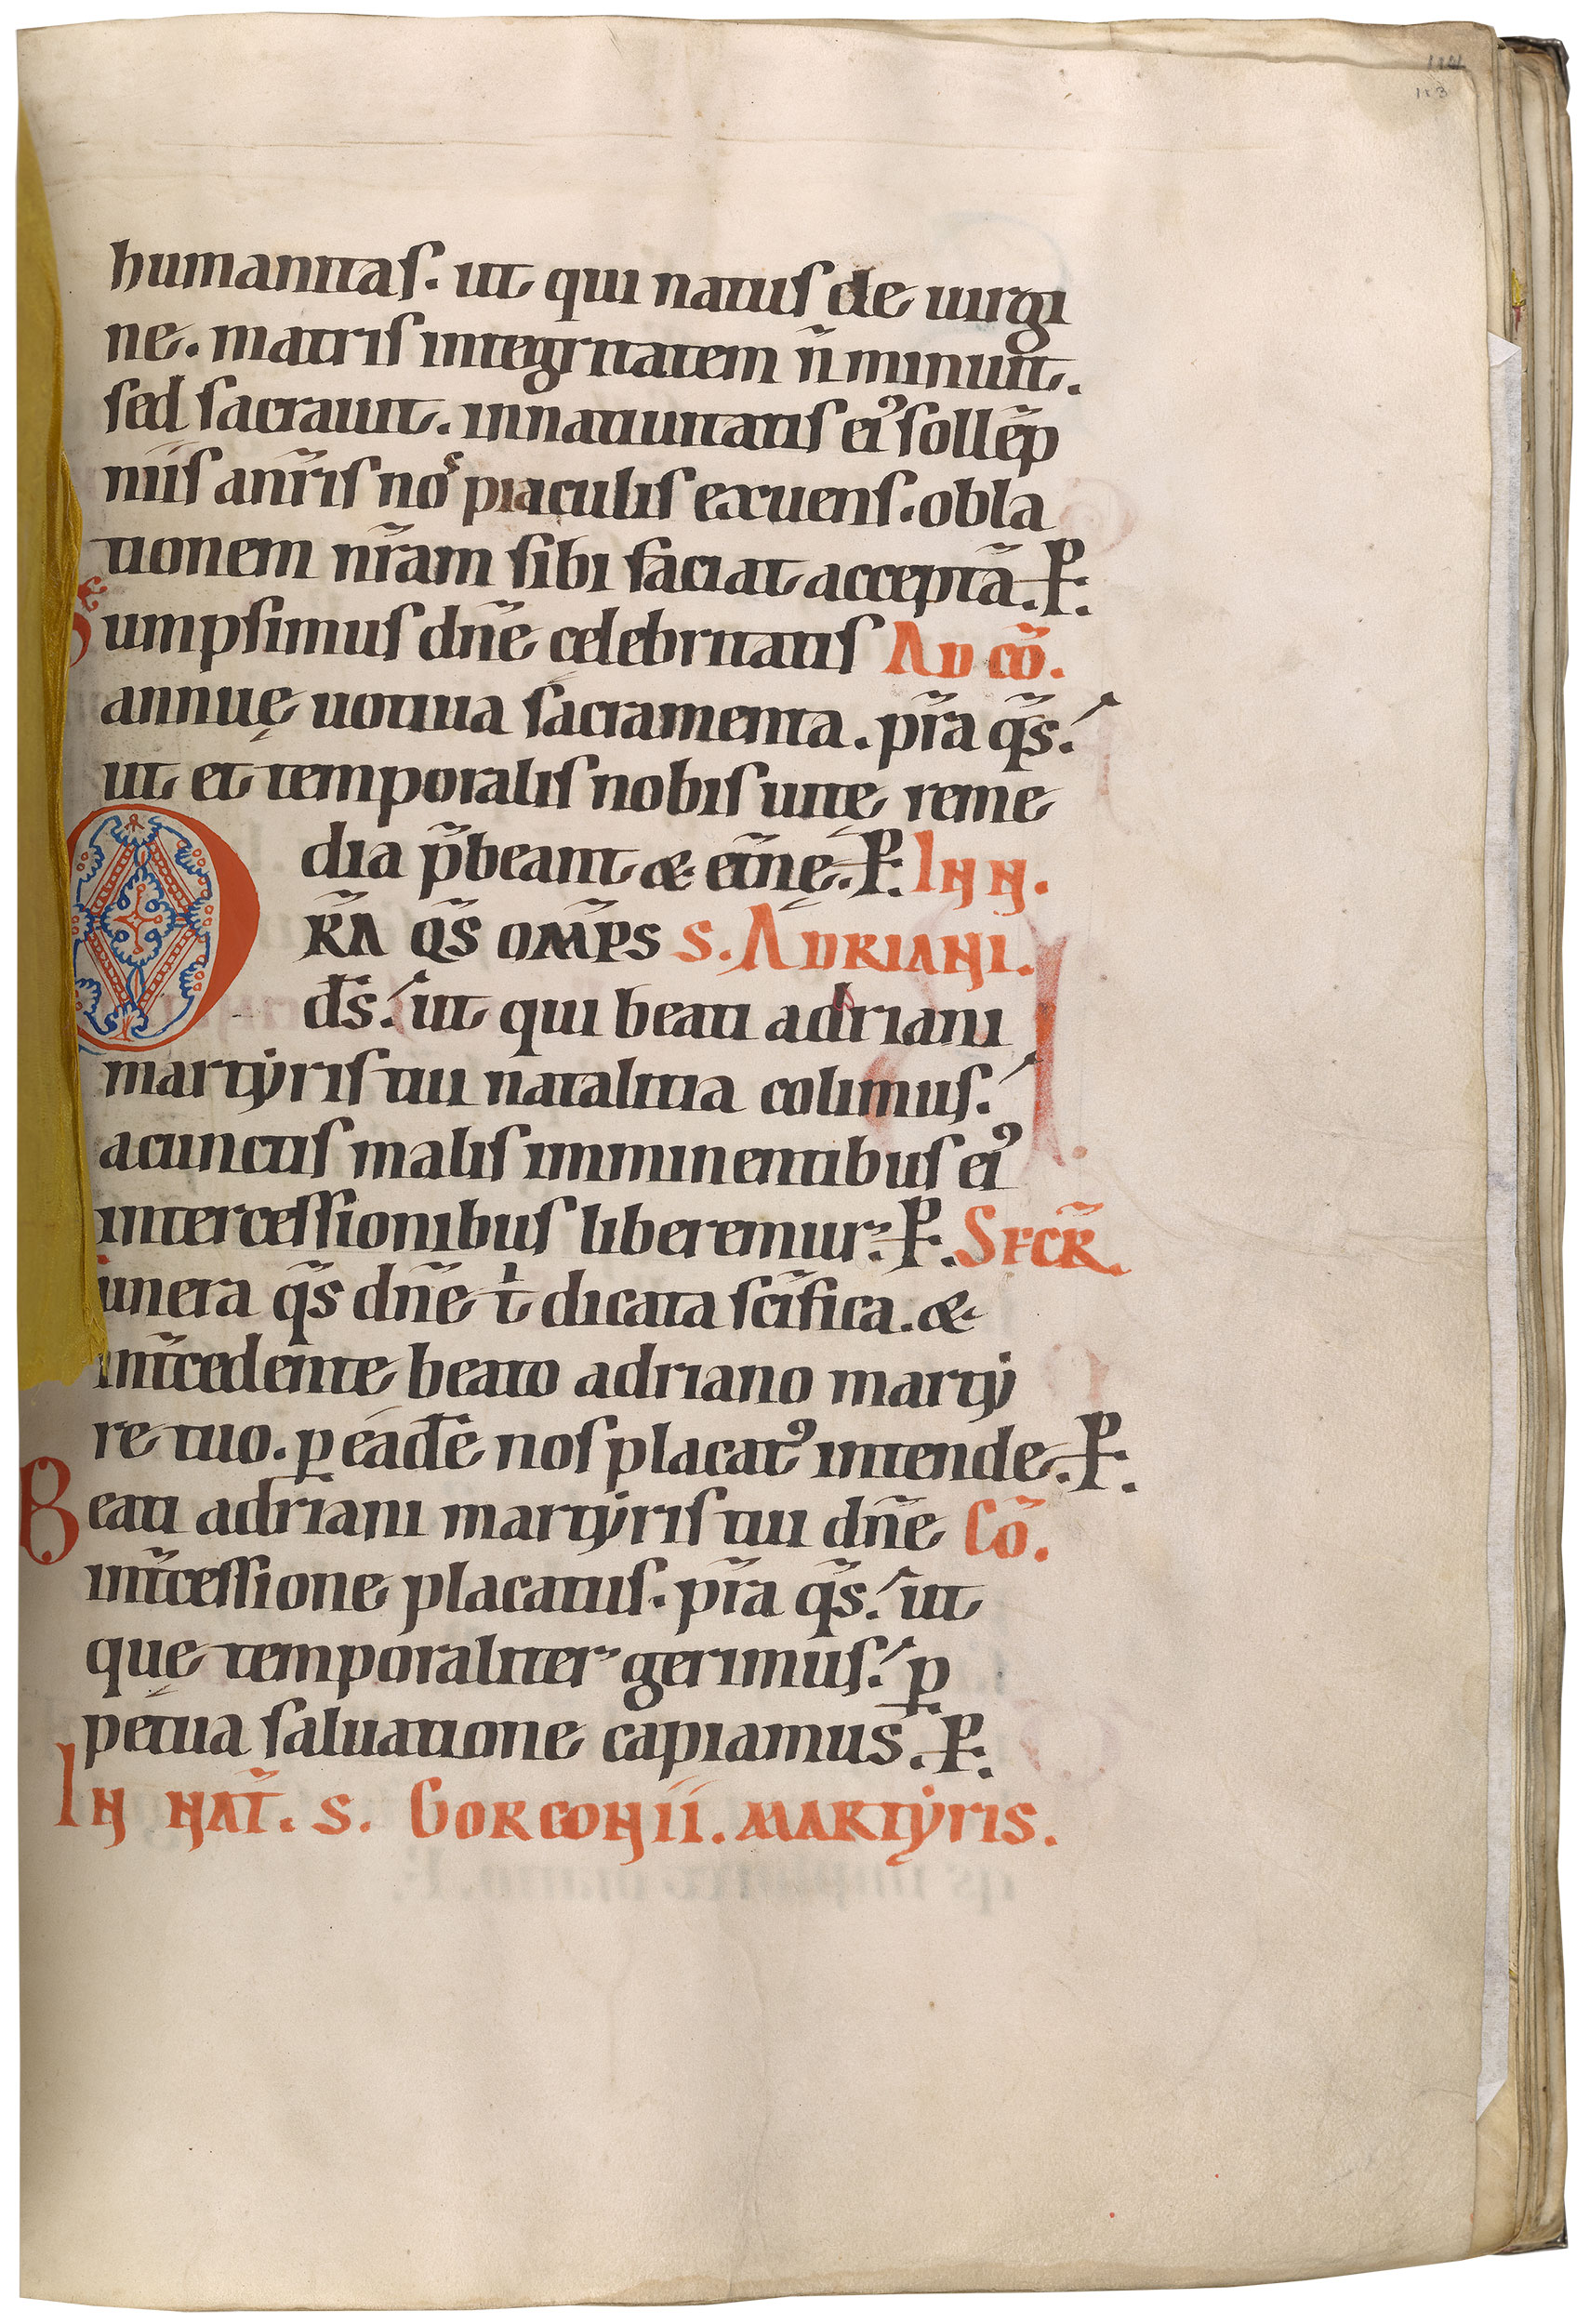 114
113
humanitas. ut qui natus de uirgi
ne. matris integritatem n̄ minuit.
sed sacrauit. in natiuitatis ei⁹ sollēp
niis a nr̄is noˢ piaculis exuens. obla
tionem nr̄am sibi faciat acceptā. P.
Sumpsimus dn̄e celebritatis AD CŌ.
annuę uotiua sacramenta. pr̄a qs̄.
ut et temporalis nobis uite reme
dia p̄beant & et̄nę. P. IN N.
OR̄A QS̄ OM̄PS S. ADRIANI.
ds̄. ut qui beati adriani
martẏris tui natalitia colimus.
a cunctis malis imminentibus ei⁹
intercessionibus liberemur. P. SECR̄
unera qs̄ dn̄e t̍ dicata sc̄ifica. &
int̄cedente beato adriano martẏ
re tuo. ꝑ eādē nos placat⁹ intende. P.
Beati adriani martẏris tui dn̄e CŌ.
int̄cessione placatus. pr̄a qs̄. ut
quę temporaliter gerimus. ꝑ
petua saluatione capiamus. P.
IN NAT̄. S. GORGONII. MARTẎRIS.